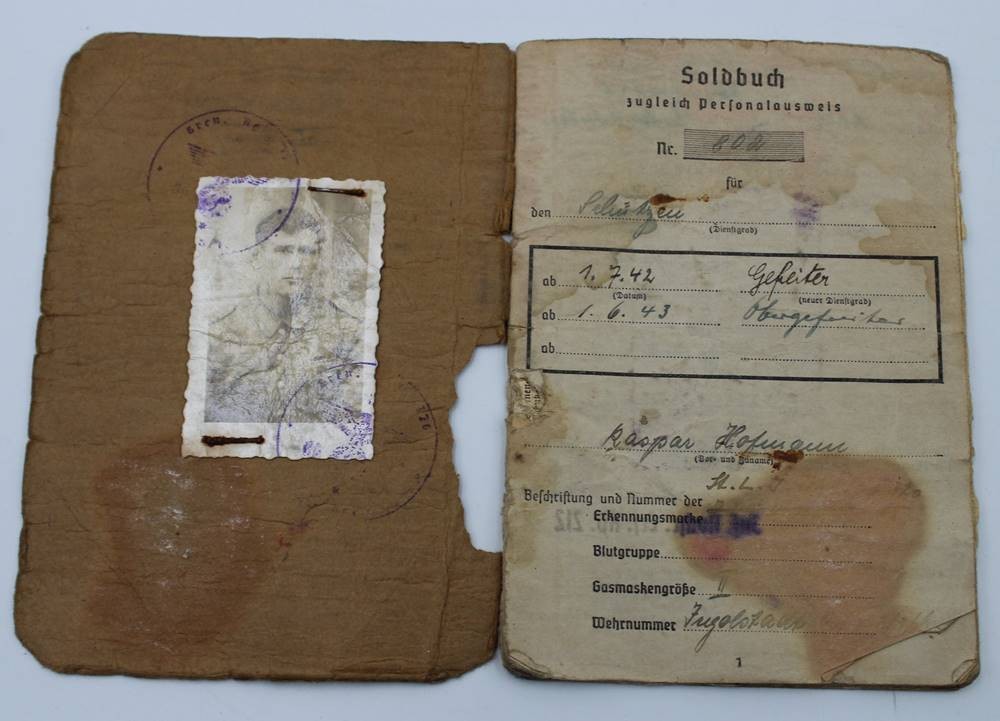 Gren.
Gren.
Soldbuch
zugleich Personalausweis
Nr. 802
für
den Schützen
(Dienstgrad)
ab 1. 7. 42 Gefreiter
(Datum) (neuer Dienstgrad)
ab 1. 6. 43 Obergefreiter
ab
Kaspar Hofmann
(Vor- und Zuname)
St. L.
Beschriftung und Nummer der
Erkennungsmarke
Blutgruppe
Gasmaskengröße II
Wehrnummer Ingolstadt
1